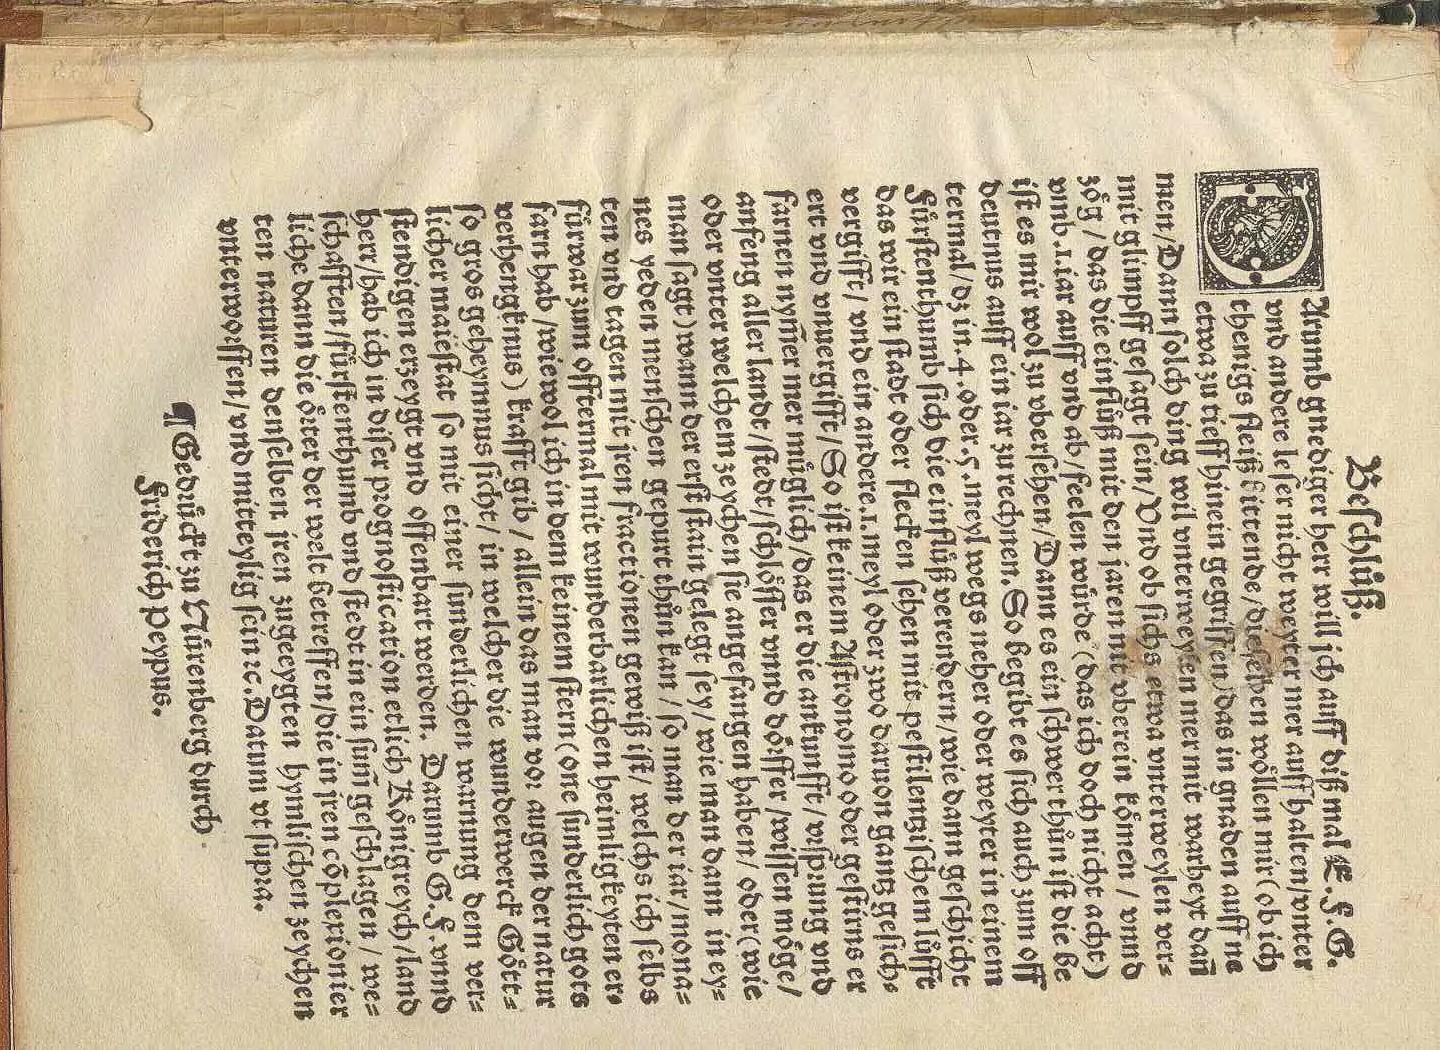 Beschlůß.
DArumb gnediger herr will jch auff diß mal E. F. G.
vnd andere leser nicht weyter mer auff halten/vnter
thenigs fleiß bittende/dieselben wöllen mir(ob ich
etwa zu tieff hinein gegriffen)das in gnaden auff ne
men/Dann solch ding wil vnterweylen mer mit warheyt dañ
mit glimpff gesagt sein/Vnd ob sichs etwa vnterweylen ver-
zög/das die einflůß mit den jaren nit vberein kömen/vnnd
vmb.1.iar auff vnd ab/feelen würde(das ich doch nicht acht)
ist es mir wol zu vbersehen/Dann es ein schwer thůn ist die be
deutnus auff ein iar zu rechnen. So begibt es sich auch zum off
termal/dz in.4.oder.5.meyl wegs neher oder weyter in einem
Fürstenthumb sich die einflůß verendern/wie dann geschicht
das wir ein stadt oder flecken sehen mit pestilentzischem lüfft
vergifft/vnd ein andere.1.meyl oder zwo daruon gantz gesich-
ert vnd vnuergifft/So ist keinem Astronomo oder gestirns er
farnen nym̄er mer müglich/das er die ankunfft/vrsprung vnd
anfeng aller landt/stedt/schlösser vnnd dörffer/wissen möge/
oder vnter welchem zeychen sie angefangen haben/oder(wie
man sagt)wann der erst stain gelegt sey/wie man dann in ey-
nes yeden menschen gepurt thůn kan/so man der iar/mona-
ten vnd tagen mit jren fractionen gewiß ist/welchs ich selbs
fürwar zum offtermal mit wunderbarlichen heimligkeyten er-
farn hab/wiewol ich in dem keinem stern(one sunderlich gots
verhengknus)krafft gib/allein das man vor augen der natur
so gros geheymnus sicht/in welcher die wunderwerck Gött-
licher maiestat so mit einer sunderlichen warnung dem ver-
stendigen erzeygt vnd offenbart werden. Darumb G. F. vnnd
herr/hab ich in diser prognostication etlich Königreych/land
schafften/fürstenthumb vnd stedt in ein sum̄ geschlagen/we-
liche dann die örter der welt betreffen/die in jren cōplexionier
ten naturen denselben jren zugeeygten hymlischen zeychen
vnterworffen/vnd mitteylig sein ꝛc. Datum vt supra.
¶ Gedrückt zu Nürenberg durch
Friderich Peypus.